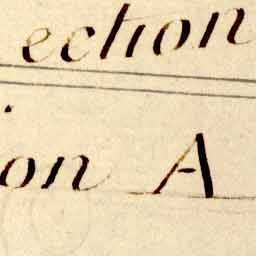 ection
ion A